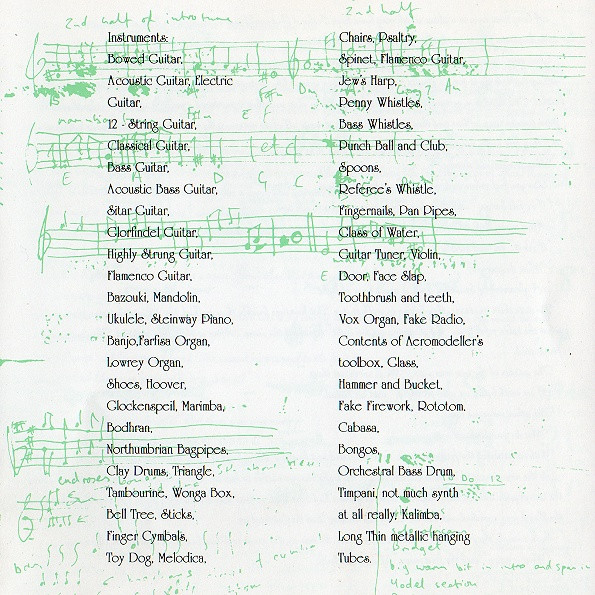 2nd half of intro tune
2nd half
Instruments:
Bowed Guitar,
Acoustic Guitar, Electric
Guitar,
12 - String Guitar,
Classical Guitar,
Bass Guitar,
Acoustic Bass Guitar,
Sitar Guitar,
Glorfindel Guitar,
Highly Strung Guitar,
Flamenco Guitar,
Bazouki, Mandolin,
Ukulele, Steinway Piano,
Banjo,Farfisa Organ,
Lowrey Organ,
Shoes, Hoover,
Glockenspeil, Marimba,
Bodhran,
Northumbrian Bagpipes,
Clay Drums, Triangle,
Tambourine, Wonga Box,
Bell Tree, Sticks,
Finger Cymbals,
Toy Dog, Melodica,
Chairs, Psaltry,
Spinet, Flamenco Guitar,
Jew's Harp,
Penny Whistles,
Bass Whistles,
Punch Ball and Club,
Spoons,
Referee's Whistle,
Fingernails, Pan Pipes,
Glass of Water,
Guitar Tuner, Violin,
Door, Face Slap,
Toothbrush and teeth,
Vox Organ, Fake Radio,
Contents of Aeromodeller's
toolbox, Glass,
Hammer and Bucket,
Fake Firework, Rototom,
Cabasa,
Bongos,
Orchestral Bass Drum,
Timpani, not much synth
at all really, Kalimba,
Long Thin metallic hanging
Tubes.
big warm bit in intro and span in
Yodel section